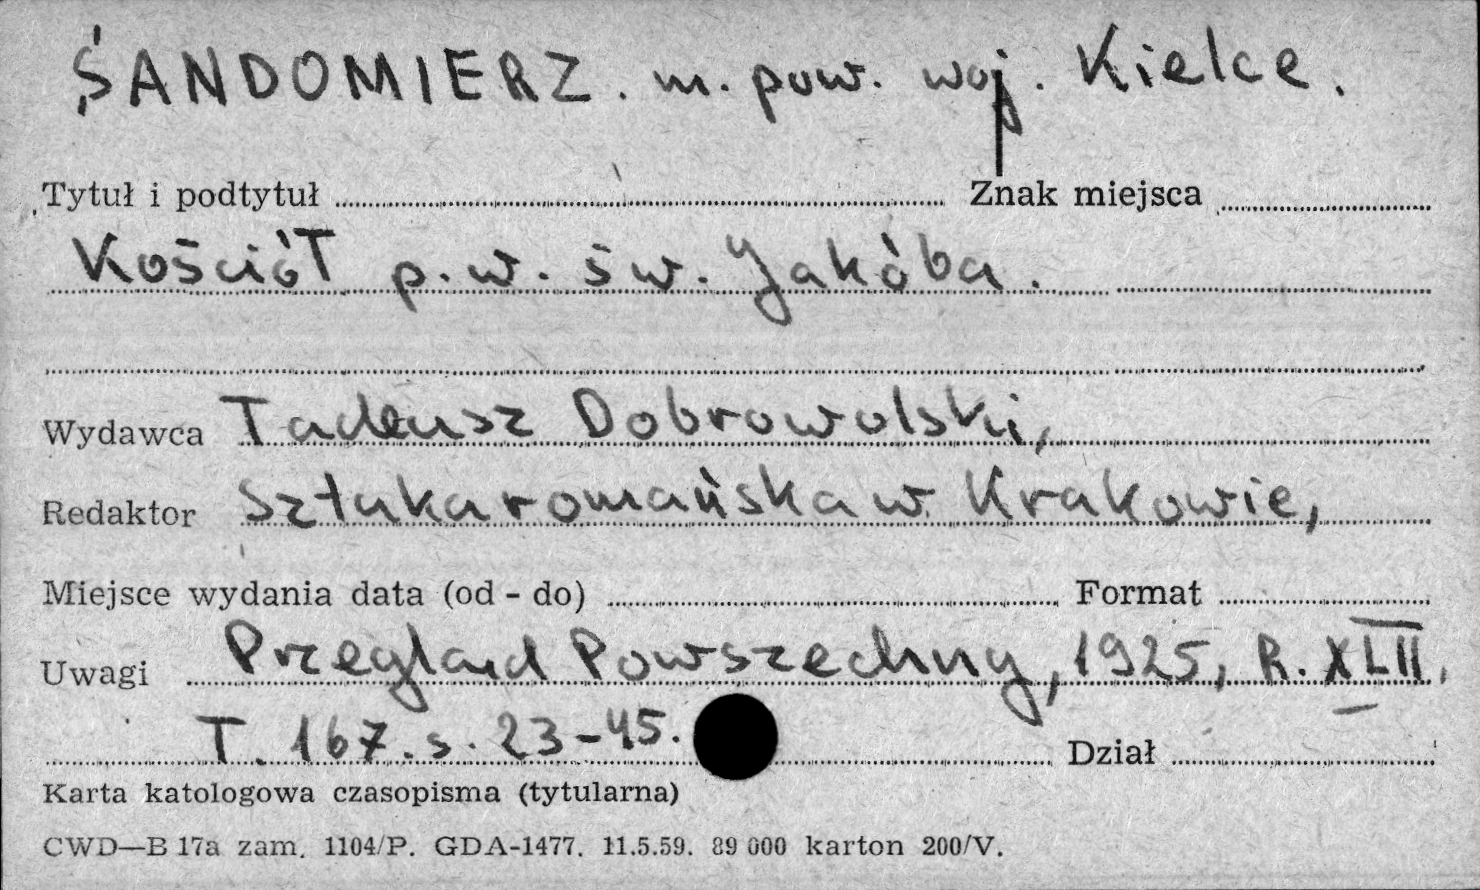 SANDOMIERZ. m. pow. woj. Kielce.
Tytuł i podtytuł Znak miejsca
Kościół p.w. św. Jakóba.
Wydawca Tadeusz Dobrowolski,
Redaktor Sztuka romańska w Krakowie,
Miejsce wydania data (od - do) Format
Uwagi Przegląd Powszechny, 1925, R. XLII,
T. 167. s. 23-45.
Dział
Karta katologowa czasopisma (tytularna)
CWD—B 17a zam. 1104/P. GDA-1477. 11.5.59. 89 000 karton 200/V.